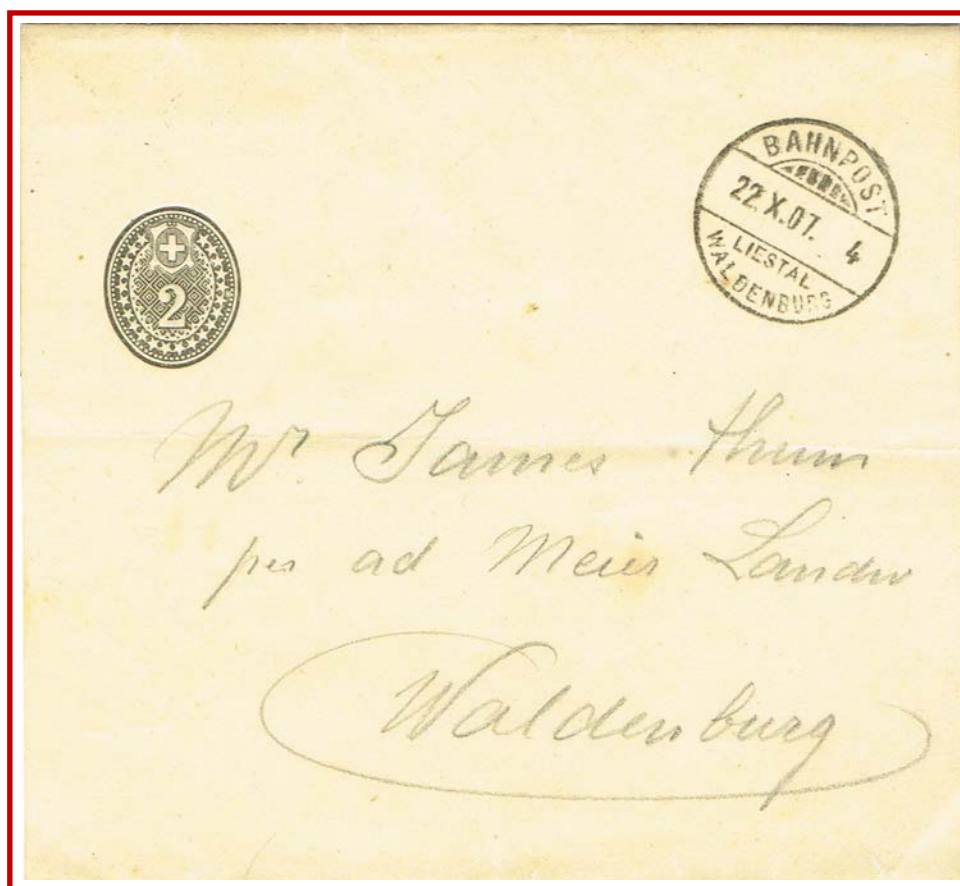 BAHNPOST
22.X.07. 4
LIESTAL
WALDENBURG
2
Mr James Thum
per ad Meier Landw
Waldenburg